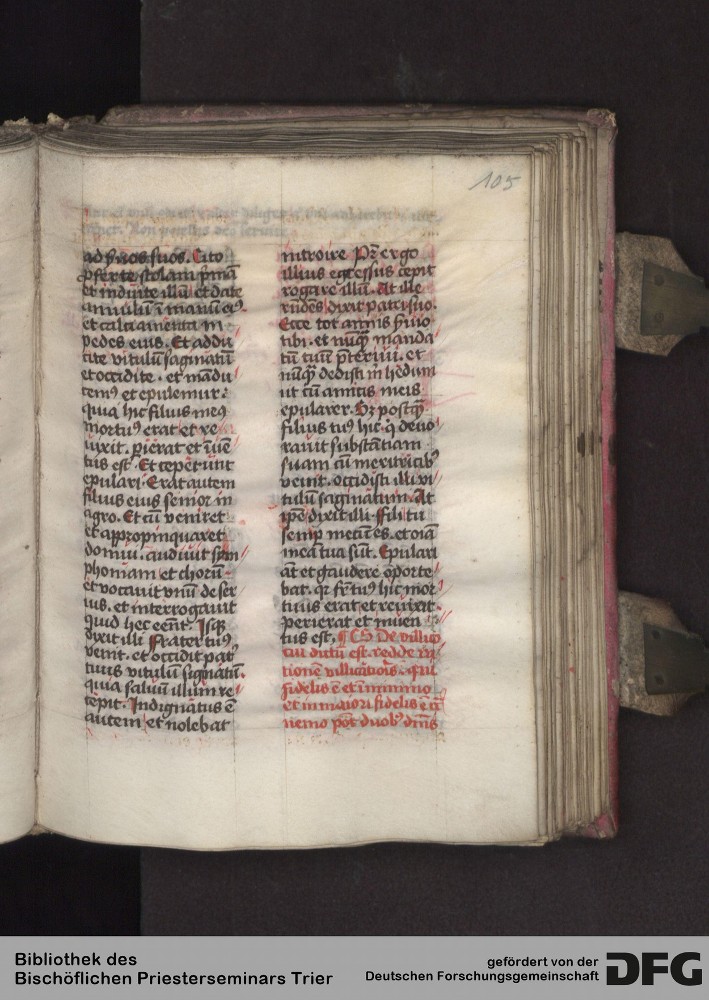 105
ad s̃uos suos. Cito
ꝓferte stolam p̃mã
et induite illũ et date
anulũ ĩ manũ eiꝰ.
et calciamenta in
pedes eius. Et addu
cite vitulũ saginatũ
et occidite. et mãdu
cemꝰ et epulemur.
quia hic filius meꝰ
mortuꝰ erat et re
uixit. ꝑierat et ĩuẽ
tus est. Et ceperunt
epulari. Erat autem
filius eius senior in
agro. Et cũ veniret
et appropinquaret
domui. audiuit sym
phoniam et chorũ
et vocauit vnũ de ser
uis. et interrogauit
quid hec eẽnt. Isqꝫ
dixit illi Frater tuꝰ
venit. et occidit pat̃
tuus vitulũ sagĩnatũ.
quia saluũ illum re
cepit. Indignatus ẽ
autem et nolebat
introire Pr̃ ergo
illius egressus cepit
rogare illũ. At ille
rñdẽs dixit patri suo.
Ecce tot annis s̃uio
tibi. et nũqꝫ manda
tũ tuũ p̃teriui. et
nũqꝫ dedisti m̃ hedum
ut cũ amicis meis
epularer. Sꝫ postqꝫ
filius tuꝰ hic. q̃ deuo
rauit substãtiam
suam cũ meretricibꝰ
venit. occidisti illi vi
tulũ saginatum. At
ip̃e dixit illi. Fili tu
semp̃ mecũ es. et oĩa
mea tua sũt. Epulari
aũt et gaudere oporte
bat. qr̃ fr̃ tuꝰ hic mor
tuus erat et reuixit.
perierat et inuen
tus est. ¶ CS De villico
cui dictũ est. redde rõ
tionẽ villicatiõis. Qui
fidelis ẽ et in minimo
et in maiori fidelis ẽ. q̃
nemo pot̃ duobꝰ dnĩs
Bibliothek des
Bischöflichen Priesterseminars Trier
gefördert von der
Deutschen Forschungsgemeinschaft
DFG